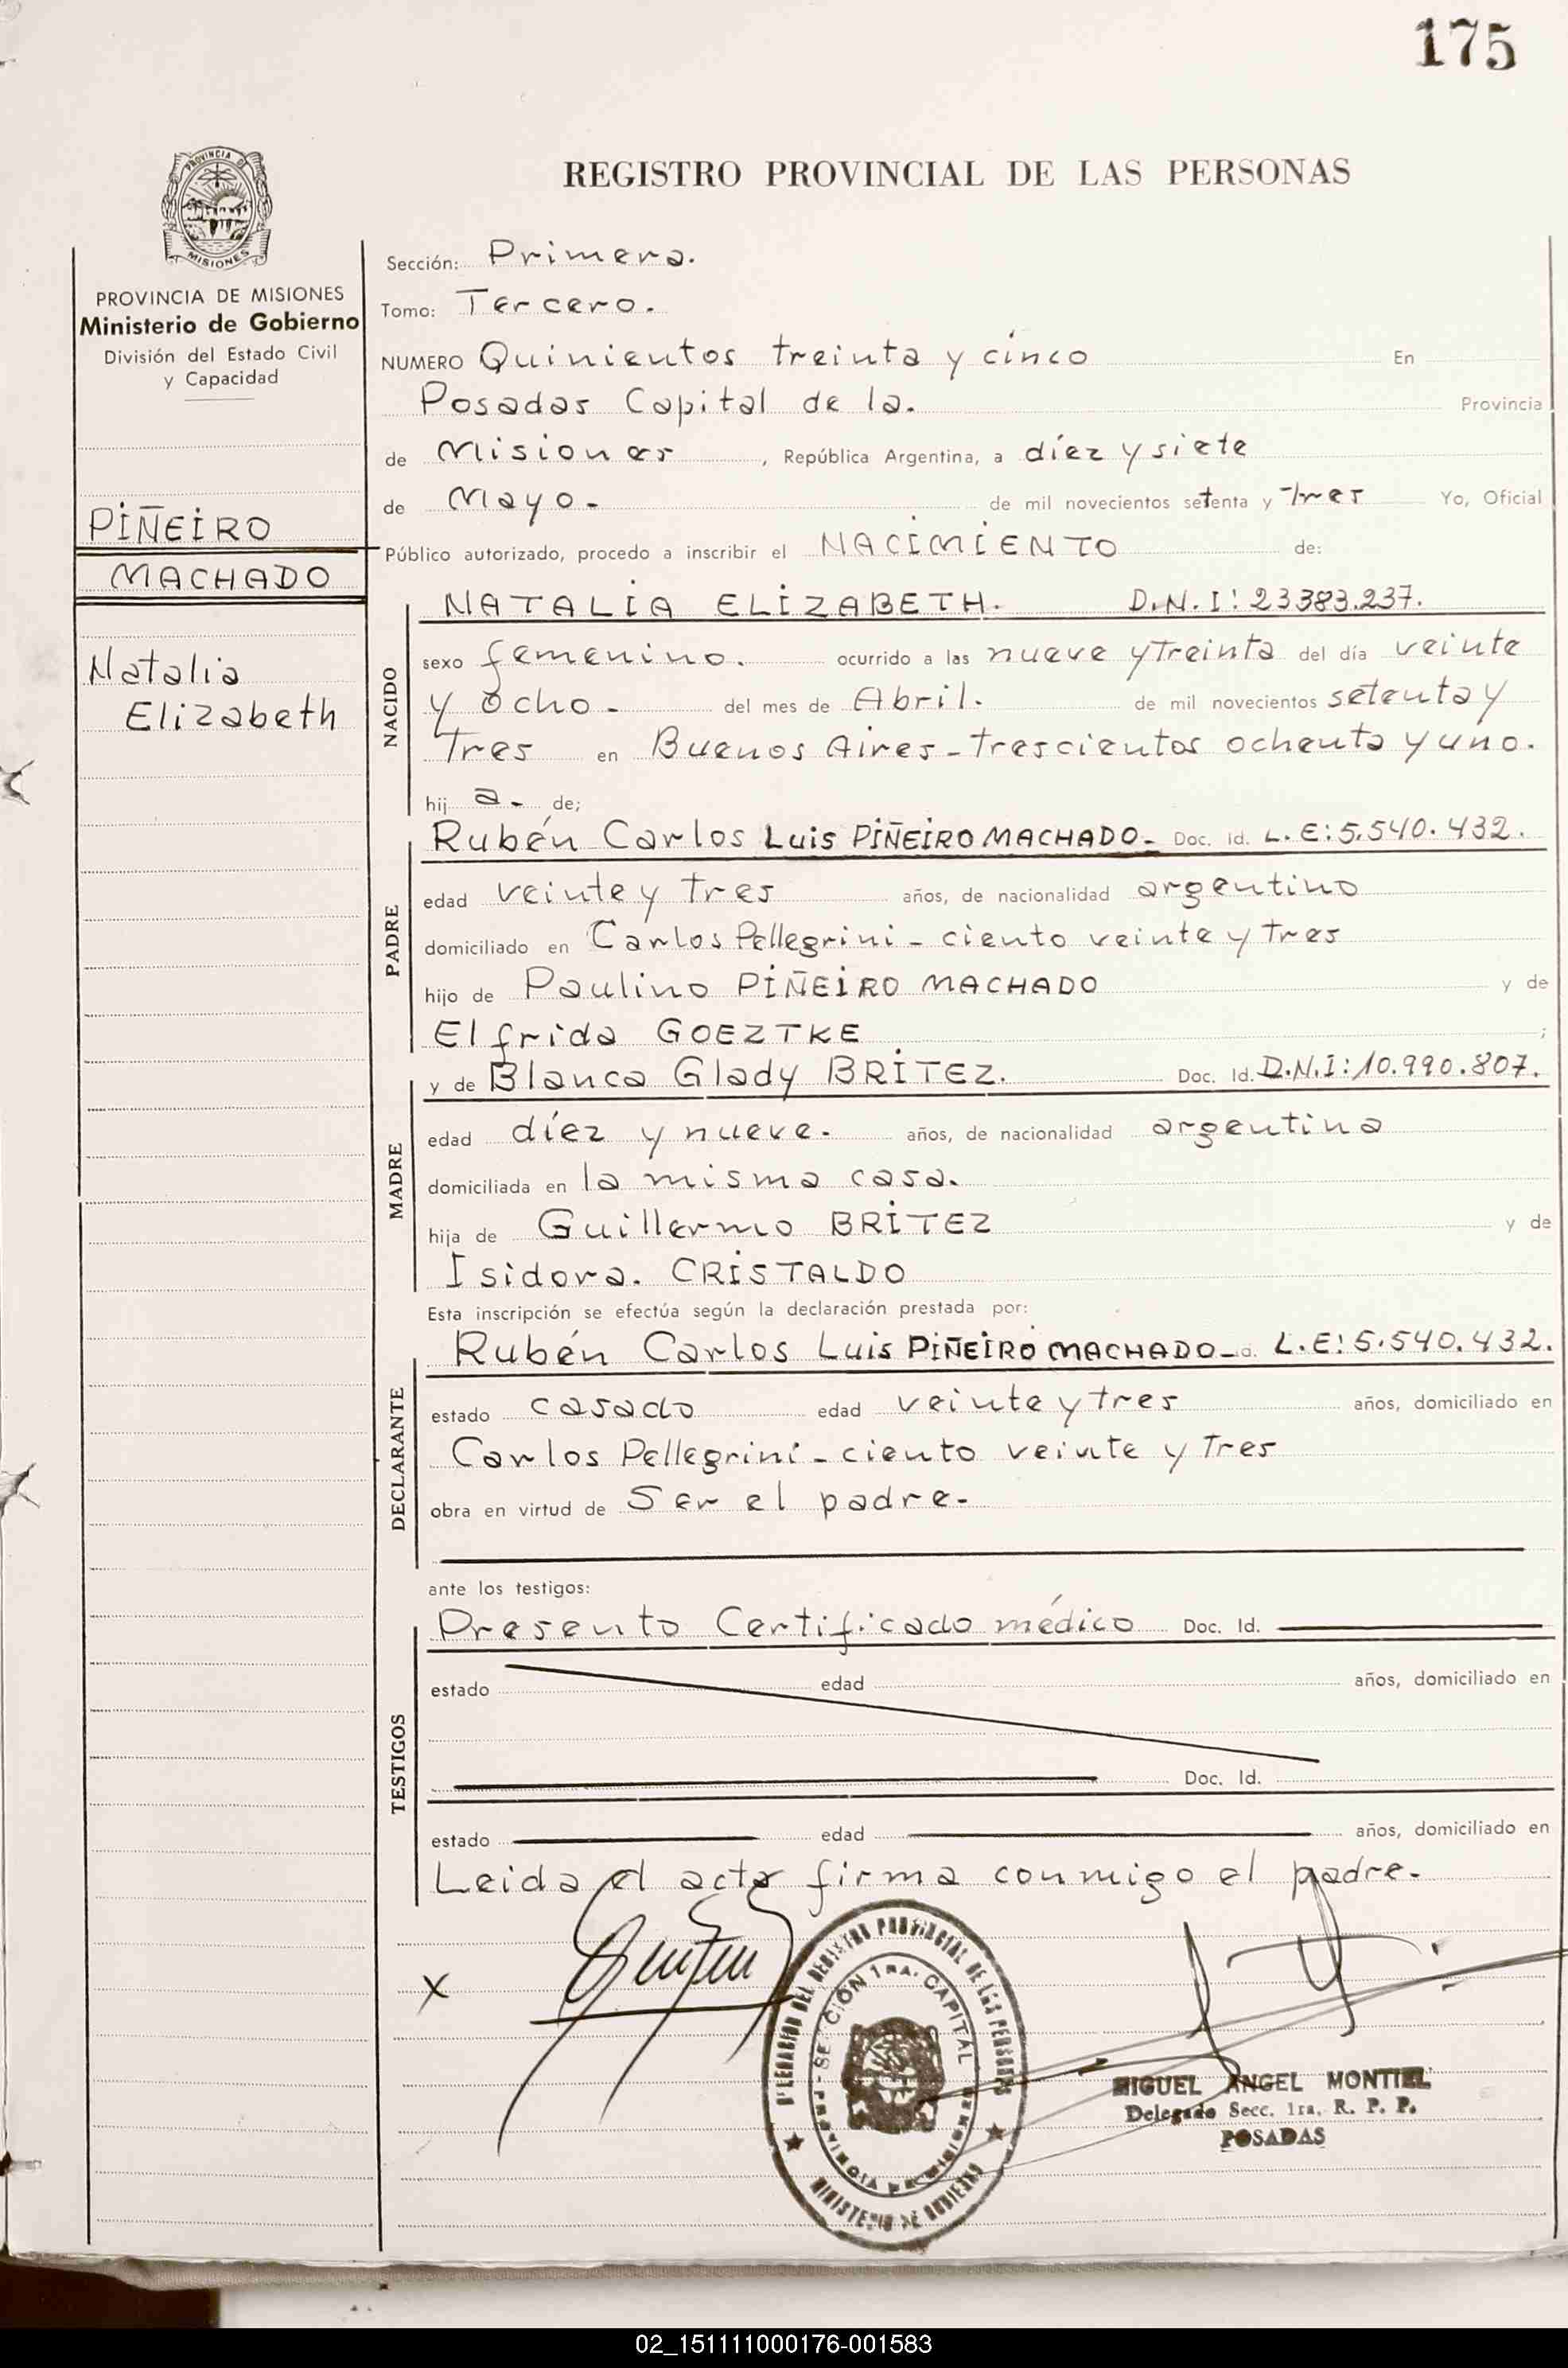 175
REGISTRO PROVINCIAL DE LAS PERSONAS
PROVINCIA DE
MISIONES
PROVINCIA DE MISIONES
Ministerio de Gobierno
División del Estado Civil
y Capacidad
PIÑEIRO
MACHADO
Natalia
Elizabeth
Sección: Primera.
Tomo: Tercero.
NUMERO Quinientos treinta y cinco En
Posadas Capital de la. Provincia
de Misiones, República Argentina, a diez y siete
de Mayo- de mil novecientos setenta y Tres Yo, Oficial
Público autorizado, procedo a inscribir el NACIMIENTO de:
NACIDO
NATALIA ELIZABETH. D.N.I: 23383.237.
sexo femenino. ocurrido a las nueve y Treinta del día veinte
y ocho- del mes de Abril. de mil novecientos setenta y
Tres en Buenos Aires-trescientos ochenta y uno.
hij a- de;
PADRE
Rubén Carlos Luis PIÑEIRO MACHADO- Doc. Id. L.E: 5.540.432.
edad veinte y tres años, de nacionalidad argentino
domiciliado en Carlos Pellegrini - ciento veinte y tres
hijo de Paulino PIÑEIRO MACHADO y de
Elfrida GOEZTKE ;
MADRE
y de Blanca Glady BRITEZ. Doc. Id. D.N.I: 10.990.807.
edad diez y nueve- años, de nacionalidad argentina
domiciliada en la misma casa.
hija de Guillermo BRITEZ y de
Isidora. CRISTALDO
Esta inscripción se efectúa según la declaración prestada por:
DECLARANTE
Rubén Carlos Luis PIÑEIRO MACHADO- d. L.E: 5.540.432.
estado casado edad veinte y tres años, domiciliado en
Carlos Pellegrini - ciento veinte y Tres
obra en virtud de Ser el padre-
ante los testigos:
TESTIGOS
Presento Certificado médico Doc. Id.
estado edad años, domiciliado en
Doc. Id.
estado edad años, domiciliado en
Leida el acta firma conmigo el padre-
X
DELEGACION DEL REGISTRO PROVINCIAL DE LAS PERSONAS
SECCION 1RA. CAPITAL
PROVINCIA DE MISIONES
MINISTERIO DE GOBIERNO
MIGUEL ANGEL MONTIEL
Delegado Secc. 1ra. R. P. P.
POSADAS
02_151111000176-001583